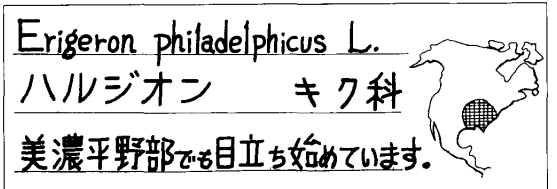 Erigeron philadelphicus L.
ハルジオン キク科
美濃平野部でも目立ち始めています。